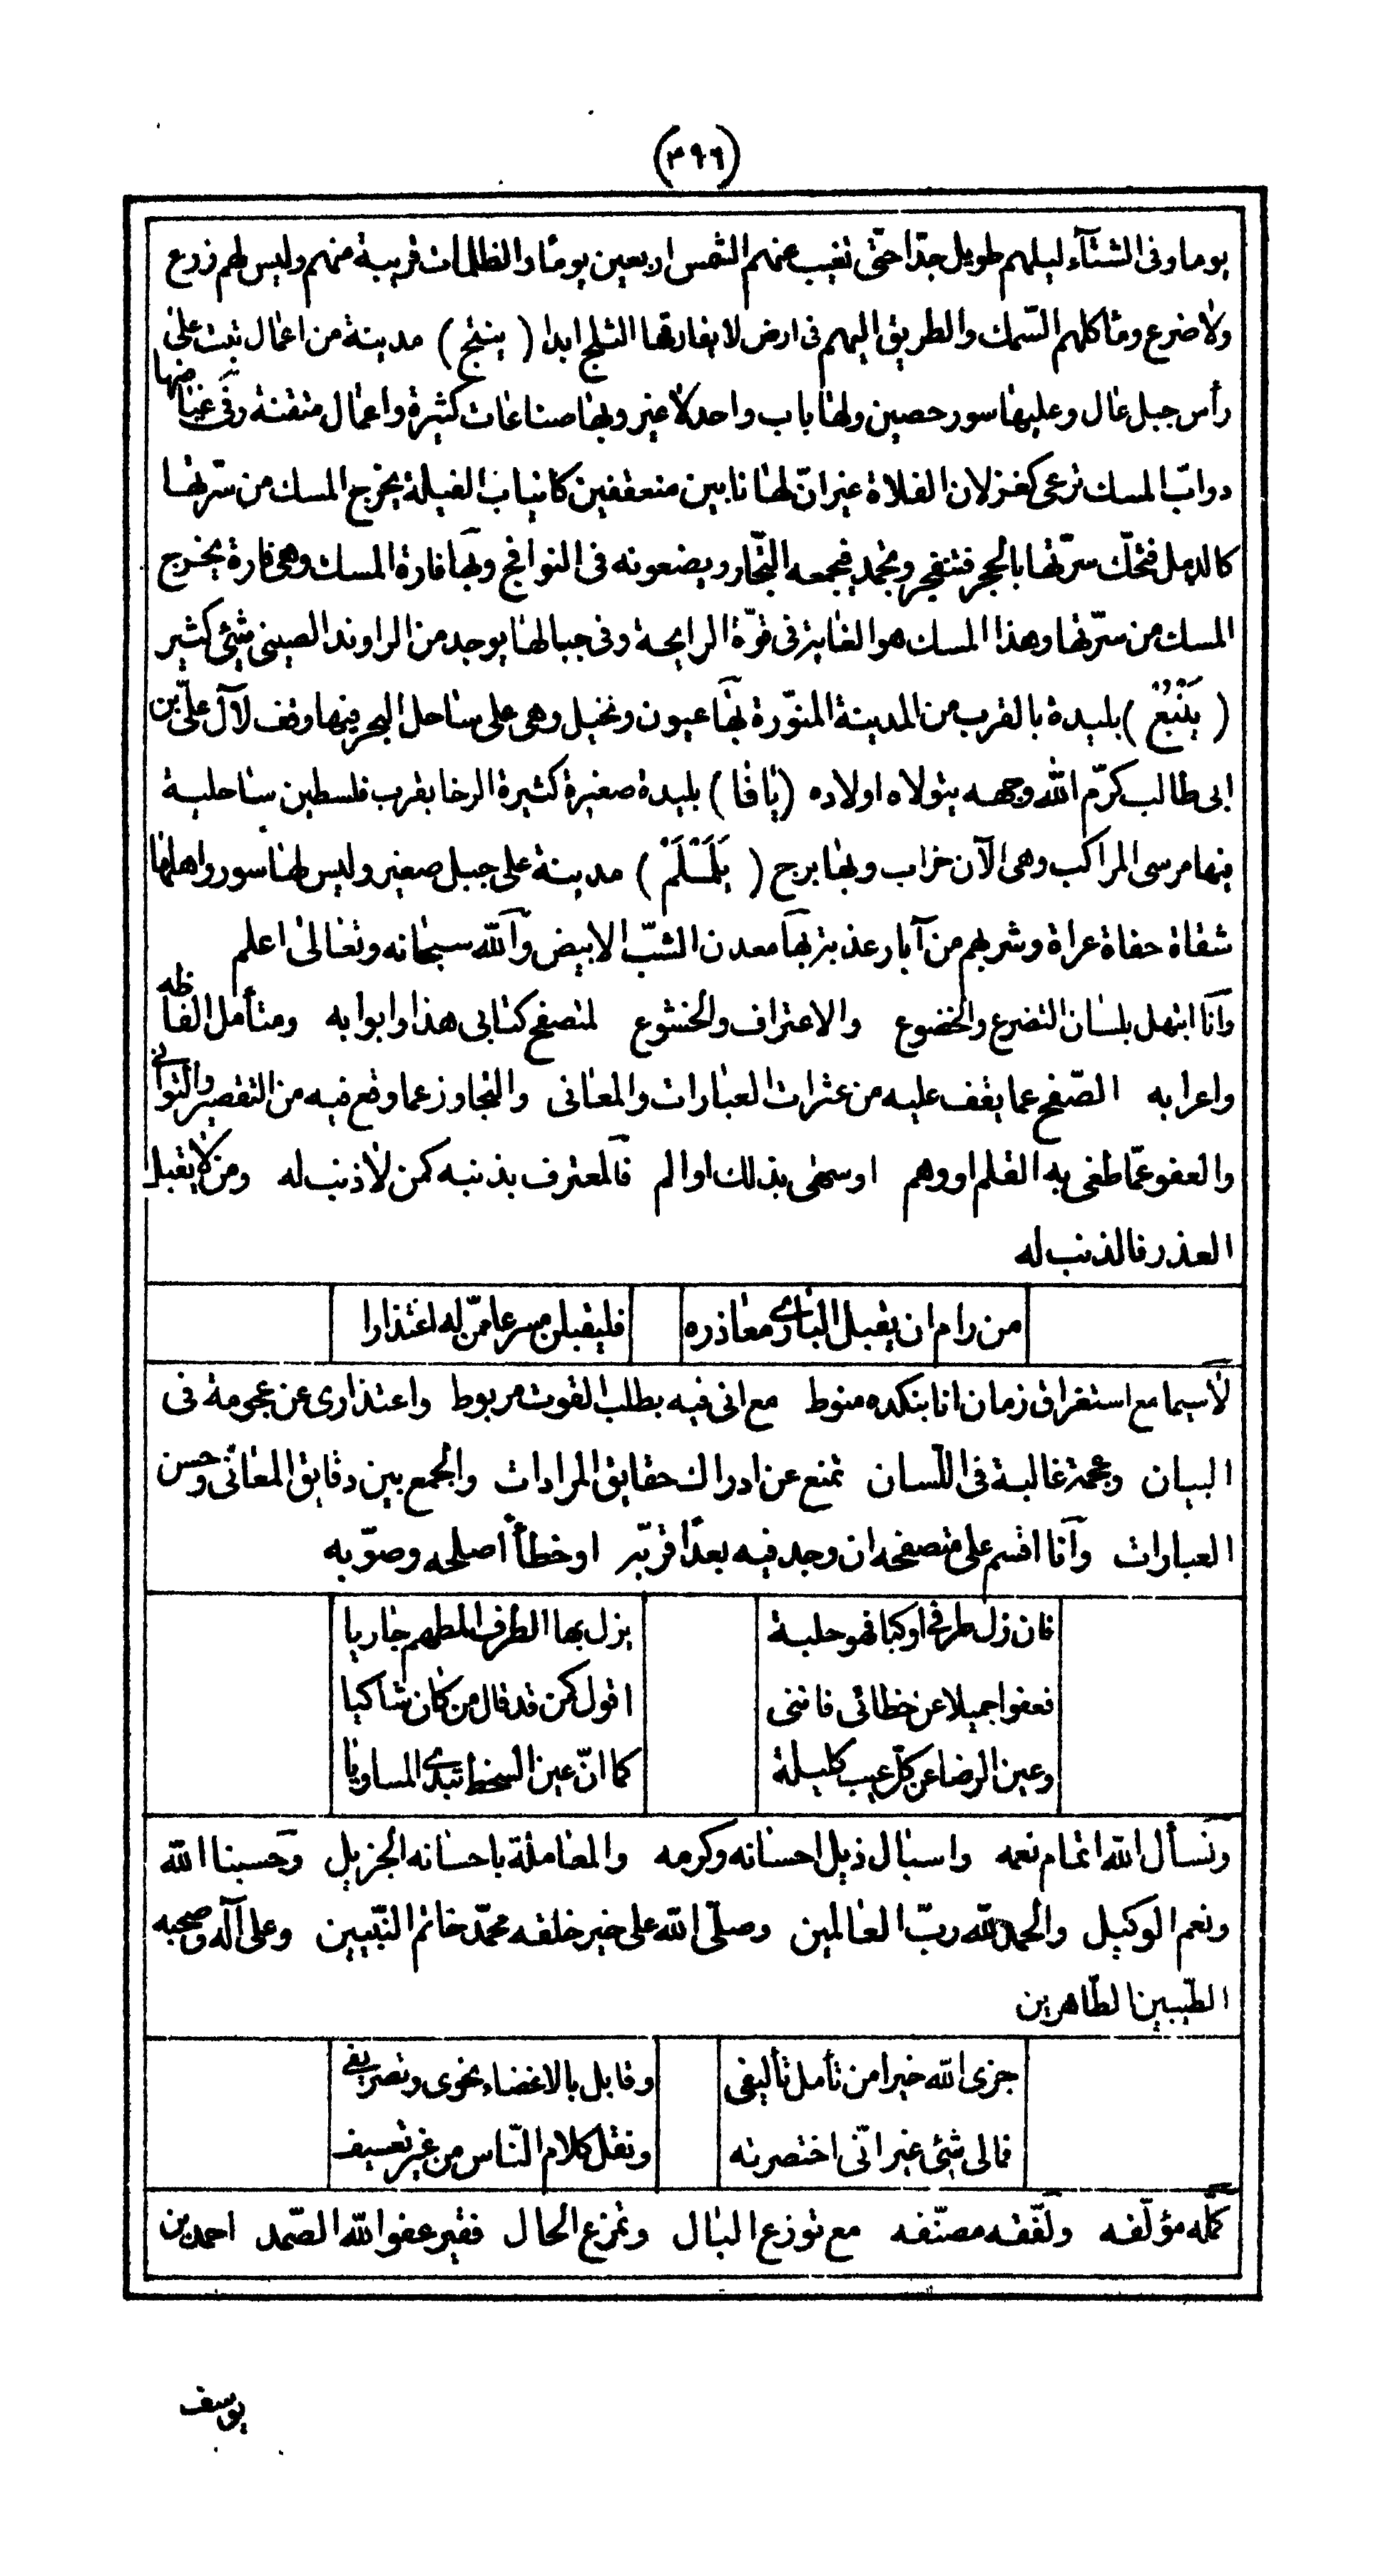 (٣٩٦)
يوما وفى الشتآء ليلهم طويل جدّا حتّى تغيب عنهم الشمس اربعين يومًا والظلمات قريبة منهم وليس لهم زرع
ولا ضرع ومأكلهم السّمك والطريق اليهم فى ارض لا يفارقها الثلج ابدا ( ينبج ) مدينة من اعمال تبت على
رأس جبل عال وعليها سور حصين ولها باب واحد لا غير وبها صناعات كثيرة واعمال متقنة وفى غياضها
دوابّ المسك ترعى كغزلان الفلاة غير انّ لها نابين منعقفين كانياب الفيلة يخرج المسك من سرّتها
كالدمل فتحكّ سرّتها بالحجر فتنفجر ويجمد فيجمعه التجّار ويضعونه فى النوافج وبها فارة المسك وهى فارة يخرج
المسك من سرّتها وهذا المسك هو الغاية فى قوّة الرايحة وفى جبالها يوجد من الراوند الصينى شئ كثير
( يَنْبُعْ ) بليدة بالقرب من المدينة المنوّرة بها عيون ونخيل وهى على ساحل البحر فيها وقف لآل علىّ بن
ابى طالب كرّم الله وجهه يتولاه اولاده (يافا) بليدة صغيرة كثيرة الرخا بقرب فلسطين ساحلية
فيها مرسى المراكب وهى الآن خراب وبها برج ( يَلَمْلَمْ ) مدينة على جبل صغير وليس لها سور واهلها
شقاة حفاة عراة وشربهم من آبار عذبة بها معدن الشبّ الابيض والله سبحانه وتعالى اعلم
وانا ابتهل بلسان التضرع والخضوع والاعتراف والخشوع لمتصفح كتابى هذا وابوابه ومتأمل الفاظه
واعرابه الصّفح عما يقف عليه من عثرات العبارات والمعانى والتجاوز عما وقع فيه من التقصير والتوانى
والعفو عمّا طغى به القلم او وهم او سهى بذلك او الم فالمعترف بذنبه كمن لا ذنب له ومن لا يقبل
العذر فالذنب له
من رام ان يقبل البارى معاذره فليقبلن مسرعا ممّن له اعتذارا
لا سيما مع استغراق زمان انا بنكده منوط مع انى فيه بطلب القوت مربوط واعتذارى عن عجومة فى
البيان وعجمة غالبة فى اللّسان تمنع عن ادراك حقايق المرادات والجمع بين دقايق المعانى وحسن
العبارات وانا اقسم على متصفحه ان وجد فيه بعدًا قرّبه او خطأ اصلحه وصوّبه
فان زل طرفى او كبا فهو حلبة يزل بها الطرف المطهم جاريا
فعفوا جميلا عن خطائى فاننى اقول كمن قد قال من كان شاكيا
وعين الرضا عن كلّ عيب كليلة كما انّ عين السخط تبدى المساويا
ونسأل الله اتمام نعمه واسبال ذيل احسانه وكرمه والمعاملة باحسانه الجزيل وحسبنا الله
ونعم الوكيل والحمد لله ربّ العالمين وصلّى الله على خير خلقه محمّد خاتم النّبيين وعلى آله وصحبه
الطيّبين الطّاهرين
جزى الله خيرا من تأمل تأليفى وقابل بالاغضاء نحوى وتصريفى
فمالى شئ غير انّى اختصرته ونقل كلام النّاس من غير تعسيف
كمّله مؤلّفه ولفّقه مصنّفه مع توزع البال وتمزع الحال فقير عفو الله الصّمد احمد بن
يوسف